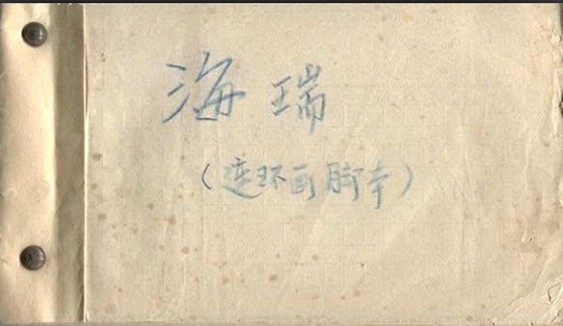 海瑞
（连环画脚本）